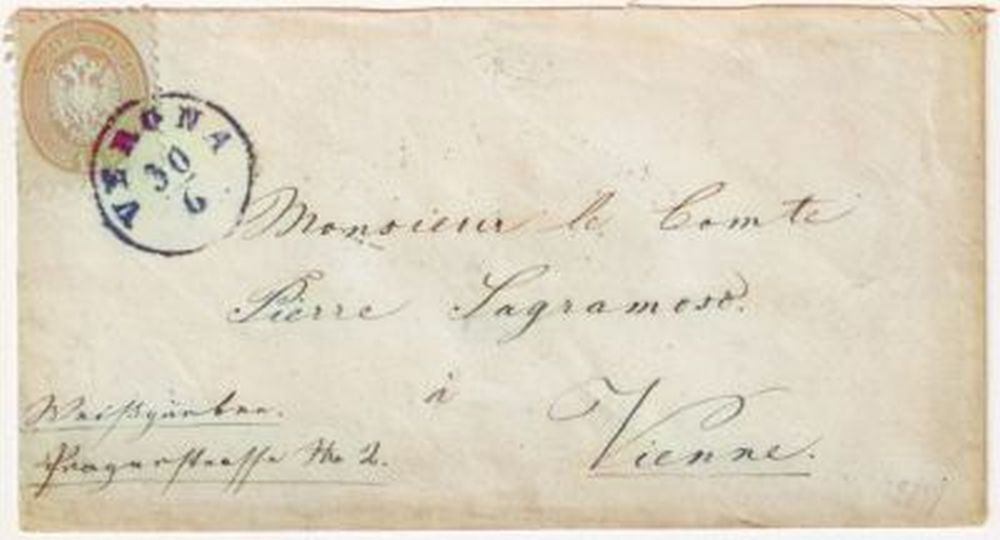 VERONA
30
6
Monsieur le Comte
Pierre Sagramoso.
à
Vienne.
Weißgärber.
Pragerstrasse No 2.